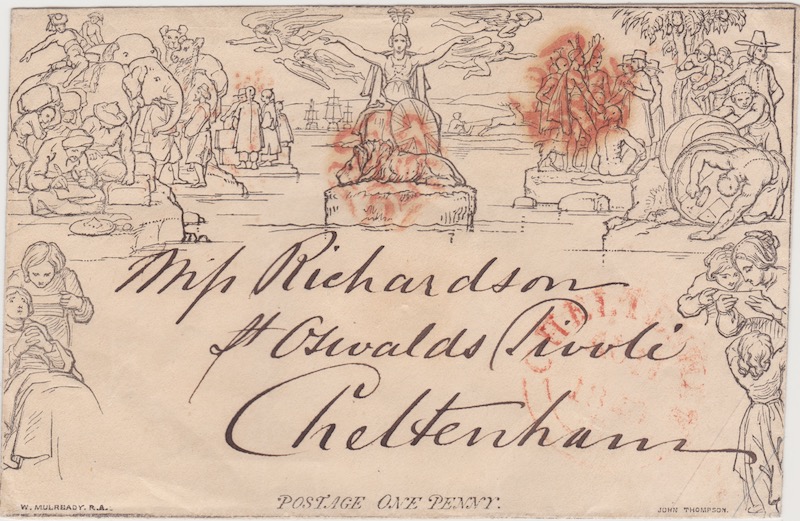 Miſs Richardson
St Oswalds Tivoli
CHELTEN
Cheltenham
POSTAGE ONE PENNY.
W. MULREADY. R.A.
JOHN THOMPSON.